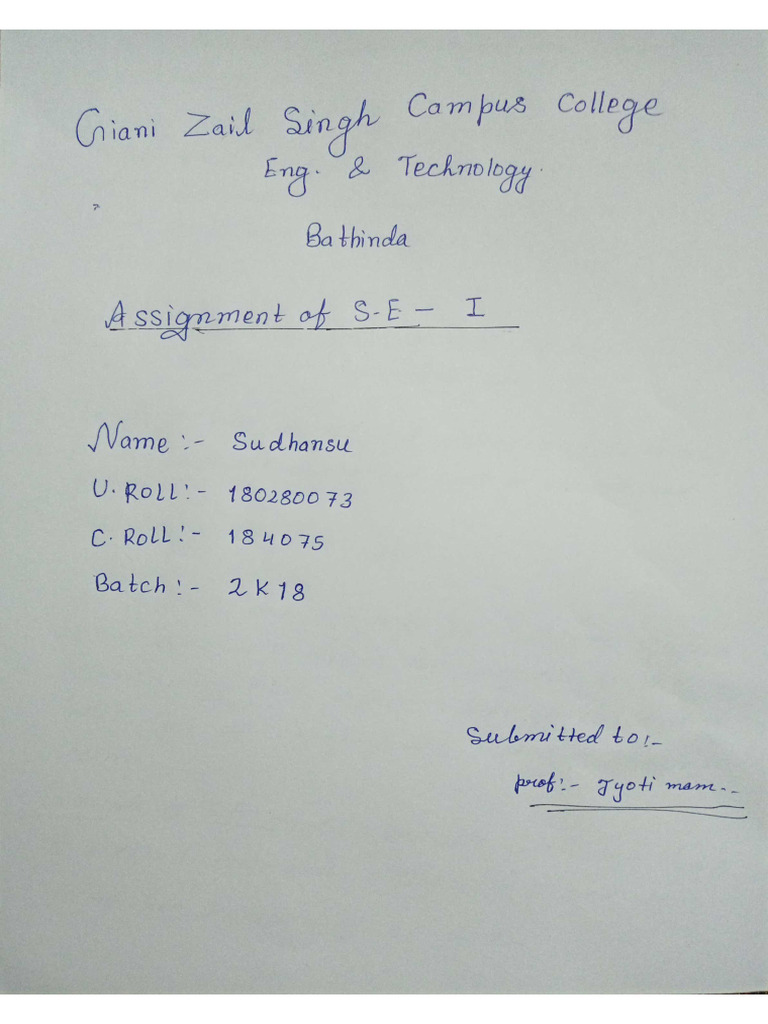 Giani Zail Singh Campus College
Eng. & Technology.
Bathinda
Assignment of S.E - I
Name :- Sudhansu
U. ROLL:- 180280073
C. ROLL:- 184075
Batch:- 2K18
Submitted to:-
prof:- Jyoti mam..